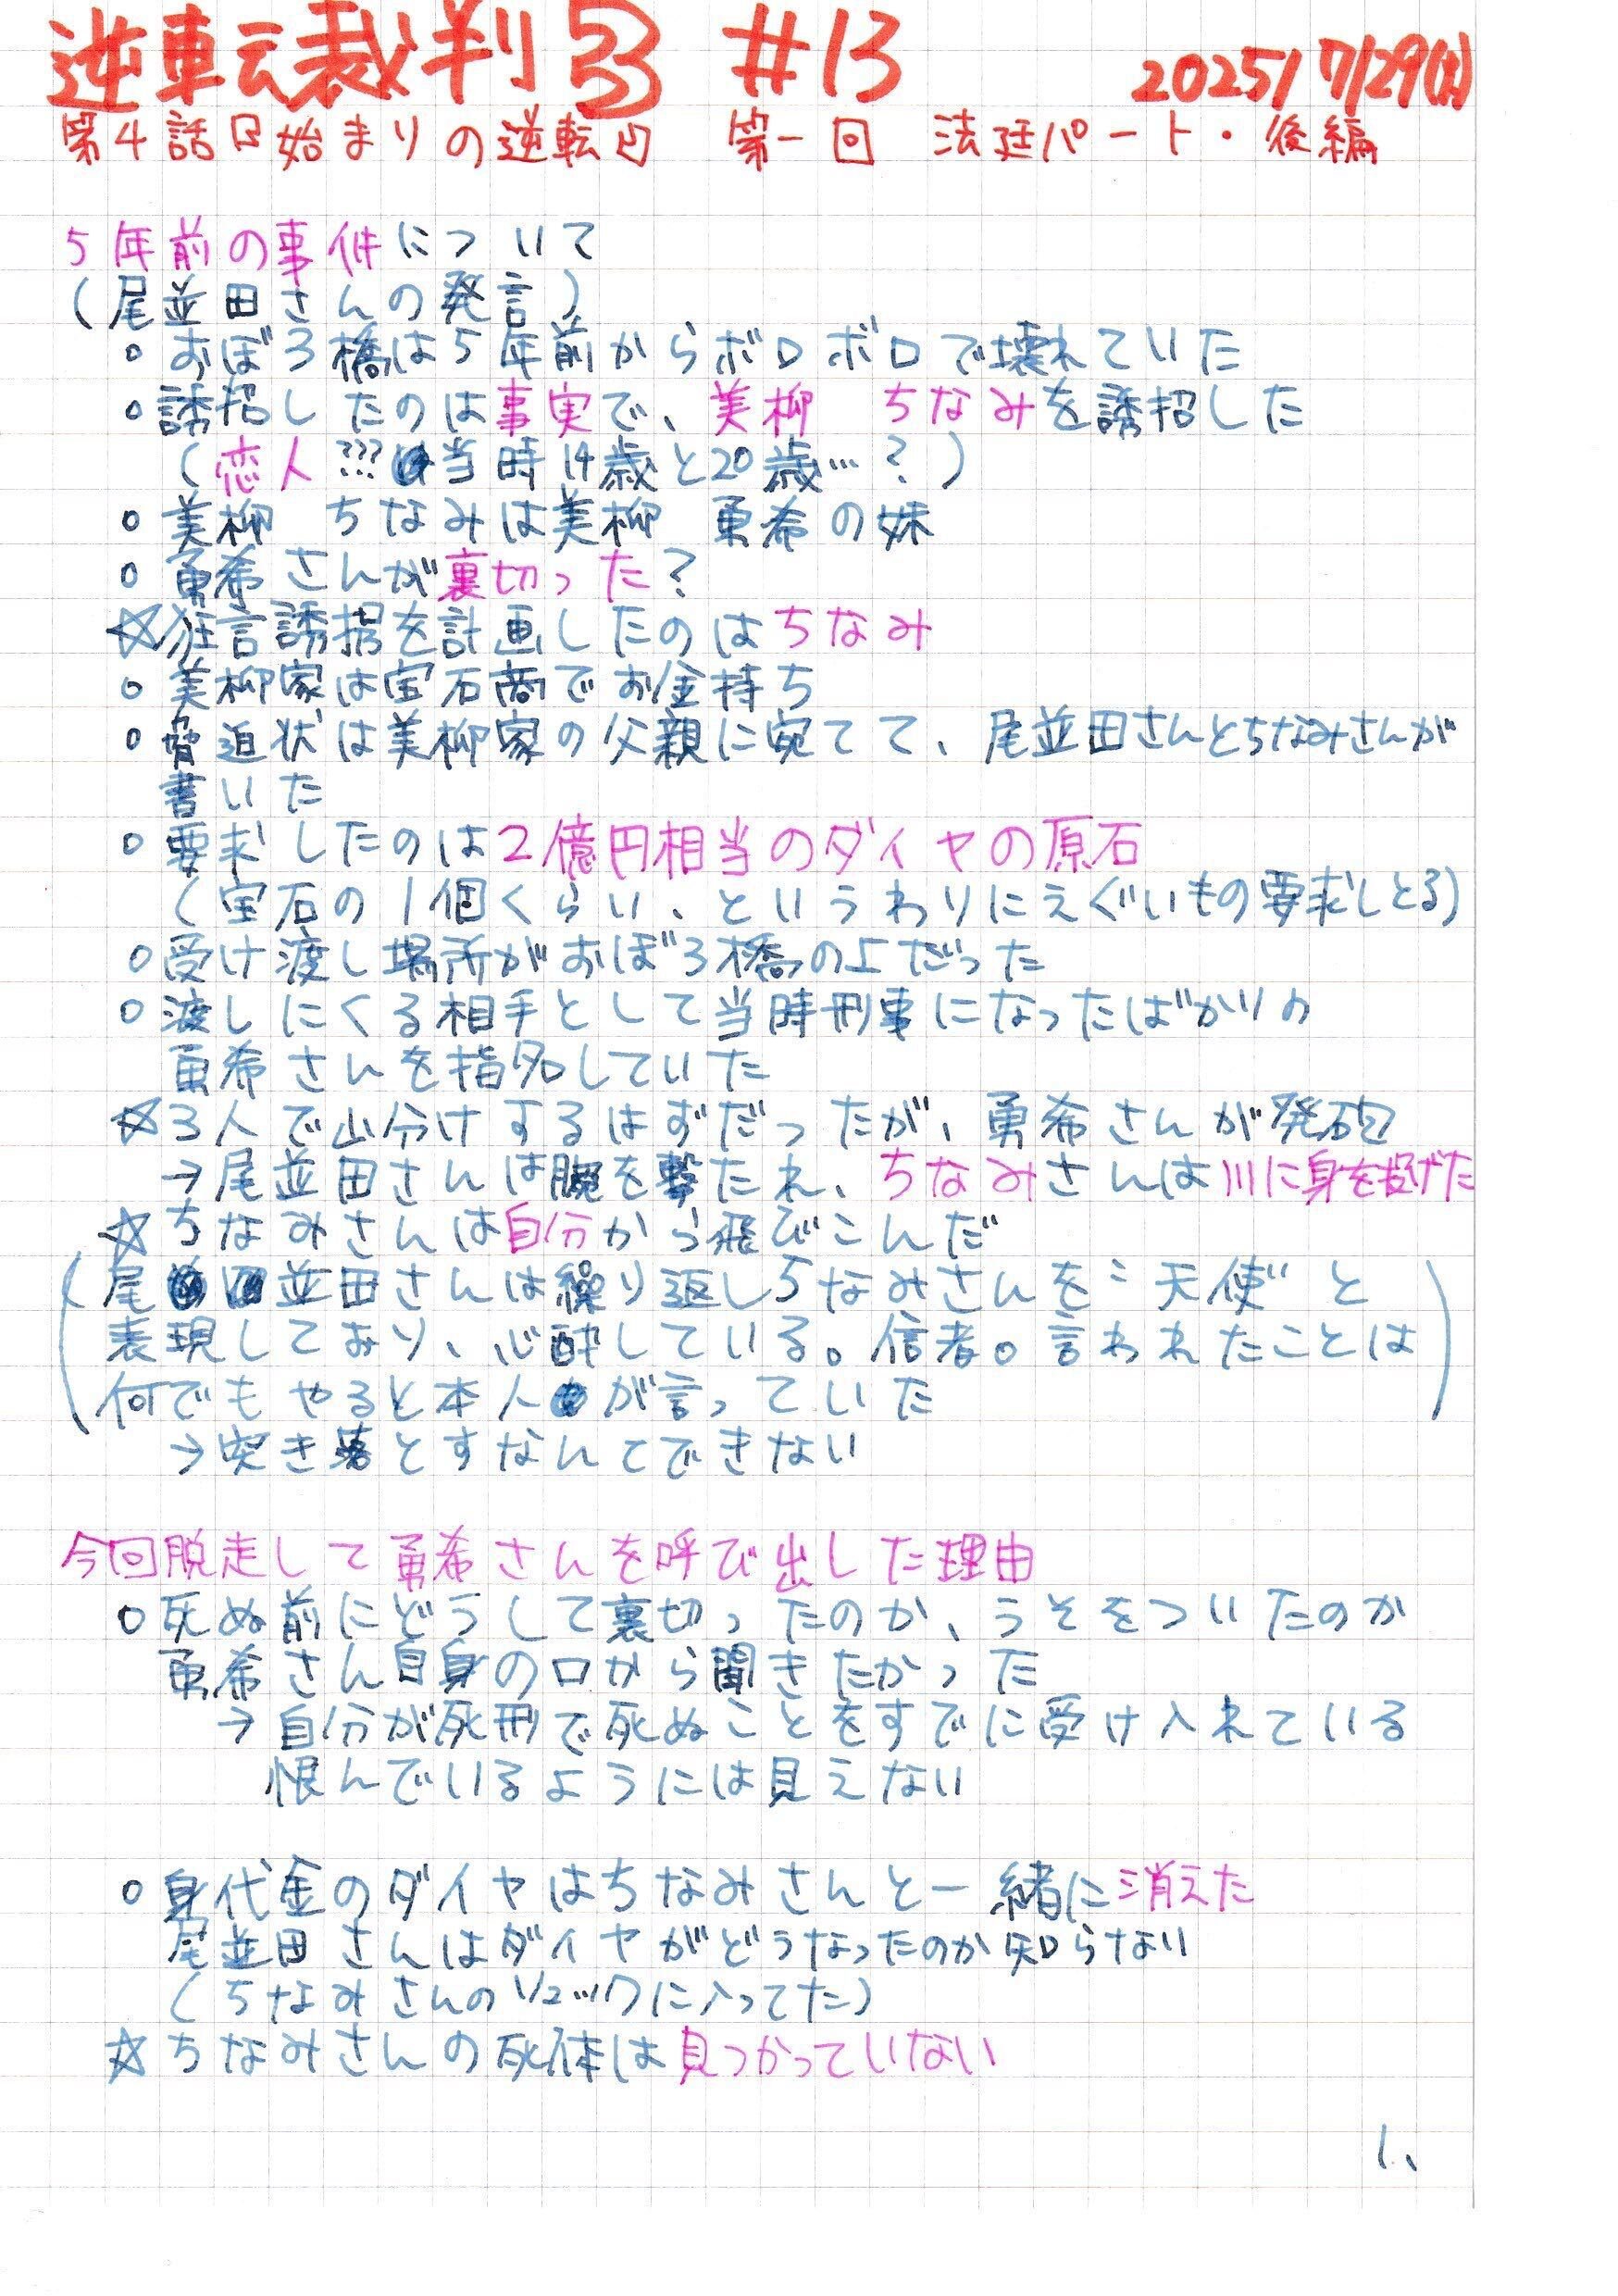 逆転裁判3 #13 2025/7/29(火)
第4話『始まりの逆転』 第一回 法廷パート・後編
5年前の事件について
(尾並田さんの発言)
○ おぼろ橋は5年前からボロボロで壊れていた
○ 誘拐したのは事実で、美柳 ちなみを誘拐した
(恋人??? 当時14歳と20歳…?)
○ 美柳 ちなみは美柳 勇希の妹
○ 勇希さんが裏切った?
☆狂言誘拐を計画したのはちなみ
○ 美柳家は宝石商でお金持ち
○ 脅迫状は美柳家の父親に宛てて、尾並田さんとちなみさんが
書いた
○ 要求したのは2億円相当のダイヤの原石
(宝石の1個くらい、というわりにえぐいもの要求しとる)
○ 受け渡し場所がおぼろ橋の上だった
○ 渡しにくる相手として当時刑事になったばかりの
勇希さんを指名していた
☆3人で山分けするはずだったが、勇希さんが発砲
→尾並田さんは腕を撃たれ、ちなみさんは川に身を投げた
☆ちなみさんは自分から飛びこんだ
(尾並田さんは繰り返しちなみさんを"天使"と
表現しており、心酔している。信者。言われたことは
何でもやると本人が言っていた)
→突き落とすなんてできない
今回脱走して勇希さんを呼び出した理由
○ 死ぬ前にどうして裏切ったのか、うそをついたのか
勇希さん自身の口から聞きたかった
→自分が死刑で死ぬことをすでに受け入れている
恨んでいるようには見えない
○ 身代金のダイヤはちなみさんと一緒に消えた
尾並田さんはダイヤがどうなったのか知らない
(ちなみさんのリュックに入ってた)
☆ちなみさんの死体は見つかっていない
1、